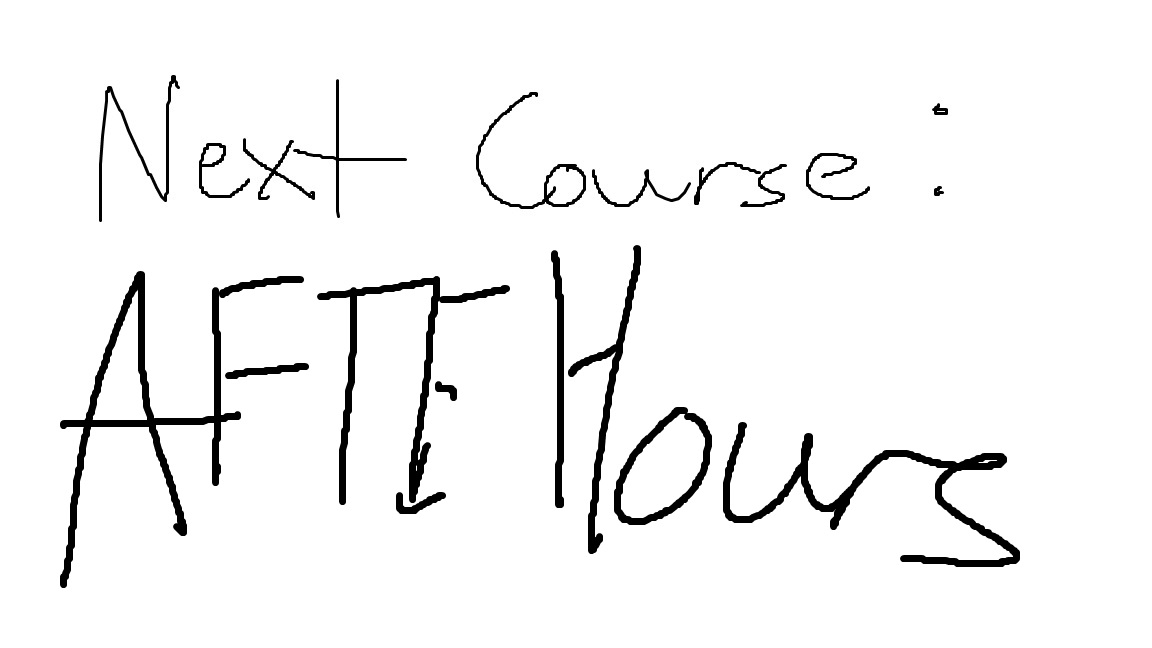 Next Course :
AFTE Hours